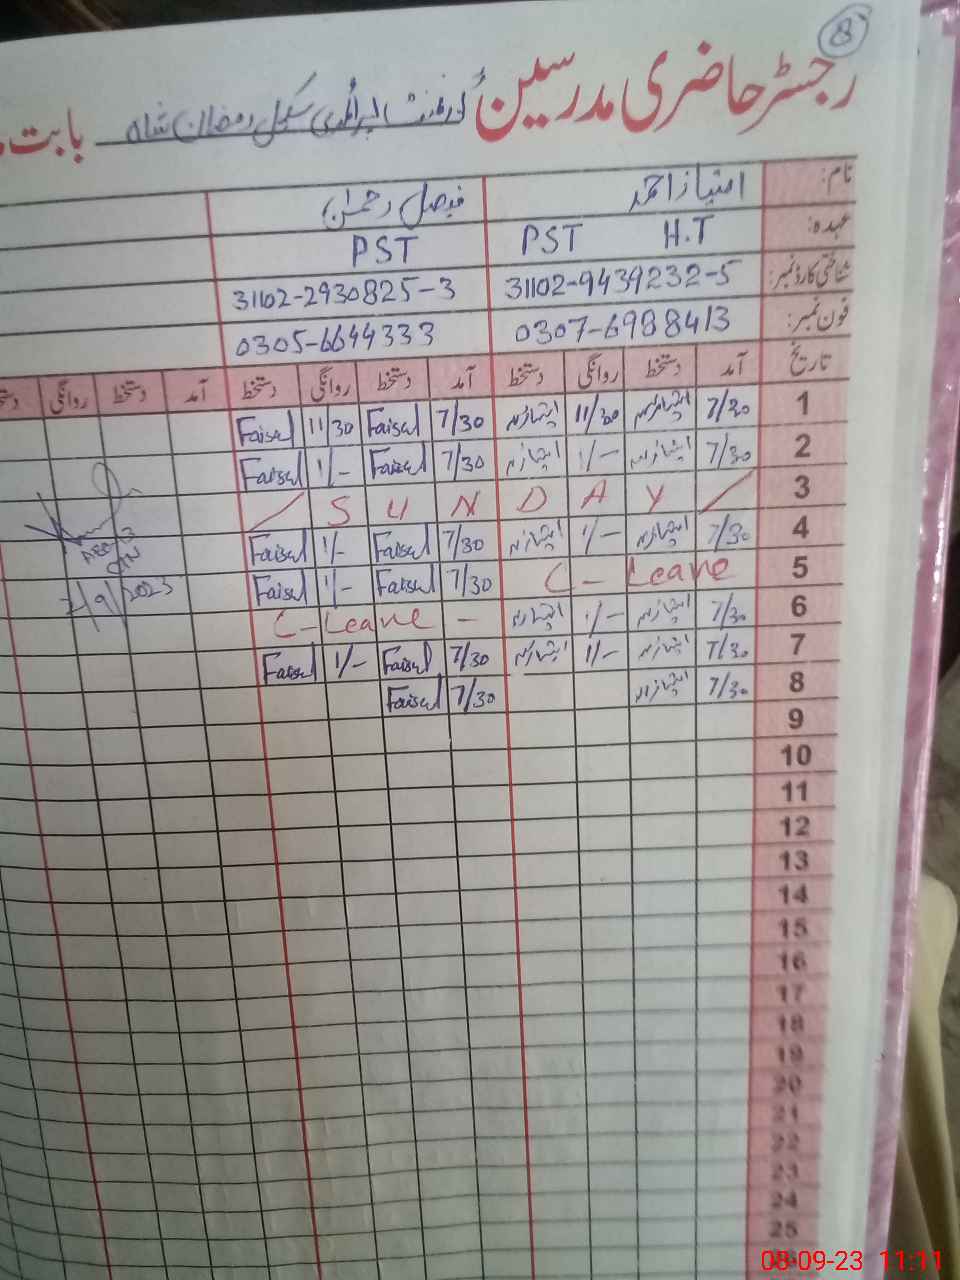 8
رجسٹر حاضری مدرسین گورنمنٹ پرائمری سکول رمضان شاہ بابت
نام: امتیاز احمد فیصل رحمان
عہدہ: H.T PST PST
شناختی کارڈ نمبر: 31102-9439232-5 31102-2930825-3
فون نمبر: 0307-6988413 0305-6644333
تاریخ آمد دستخط روانگی دستخط آمد دستخط روانگی دستخط آمد دستخط روانگی
1 7/30 11/30 7/30 Faisal 11/30 Faisal
2 7/30 1/- 7/30 Faisal 1/- Faisal
3 SUNDAY
4 7/30 1/- 7/30 Faisal 1/- Faisal
5 C-Leave 7/30 Faisal 1/- Faisal
6 7/30 1/- C-Leave -
7 7/30 1/- 7/30 Faisal 1/- Faisal
8 7/30 7/30 Faisal
7/9/2023
9
10
11
12
13
14
15
16
17
18
19
20
21
22
23
24
25
08-09-23 11:11